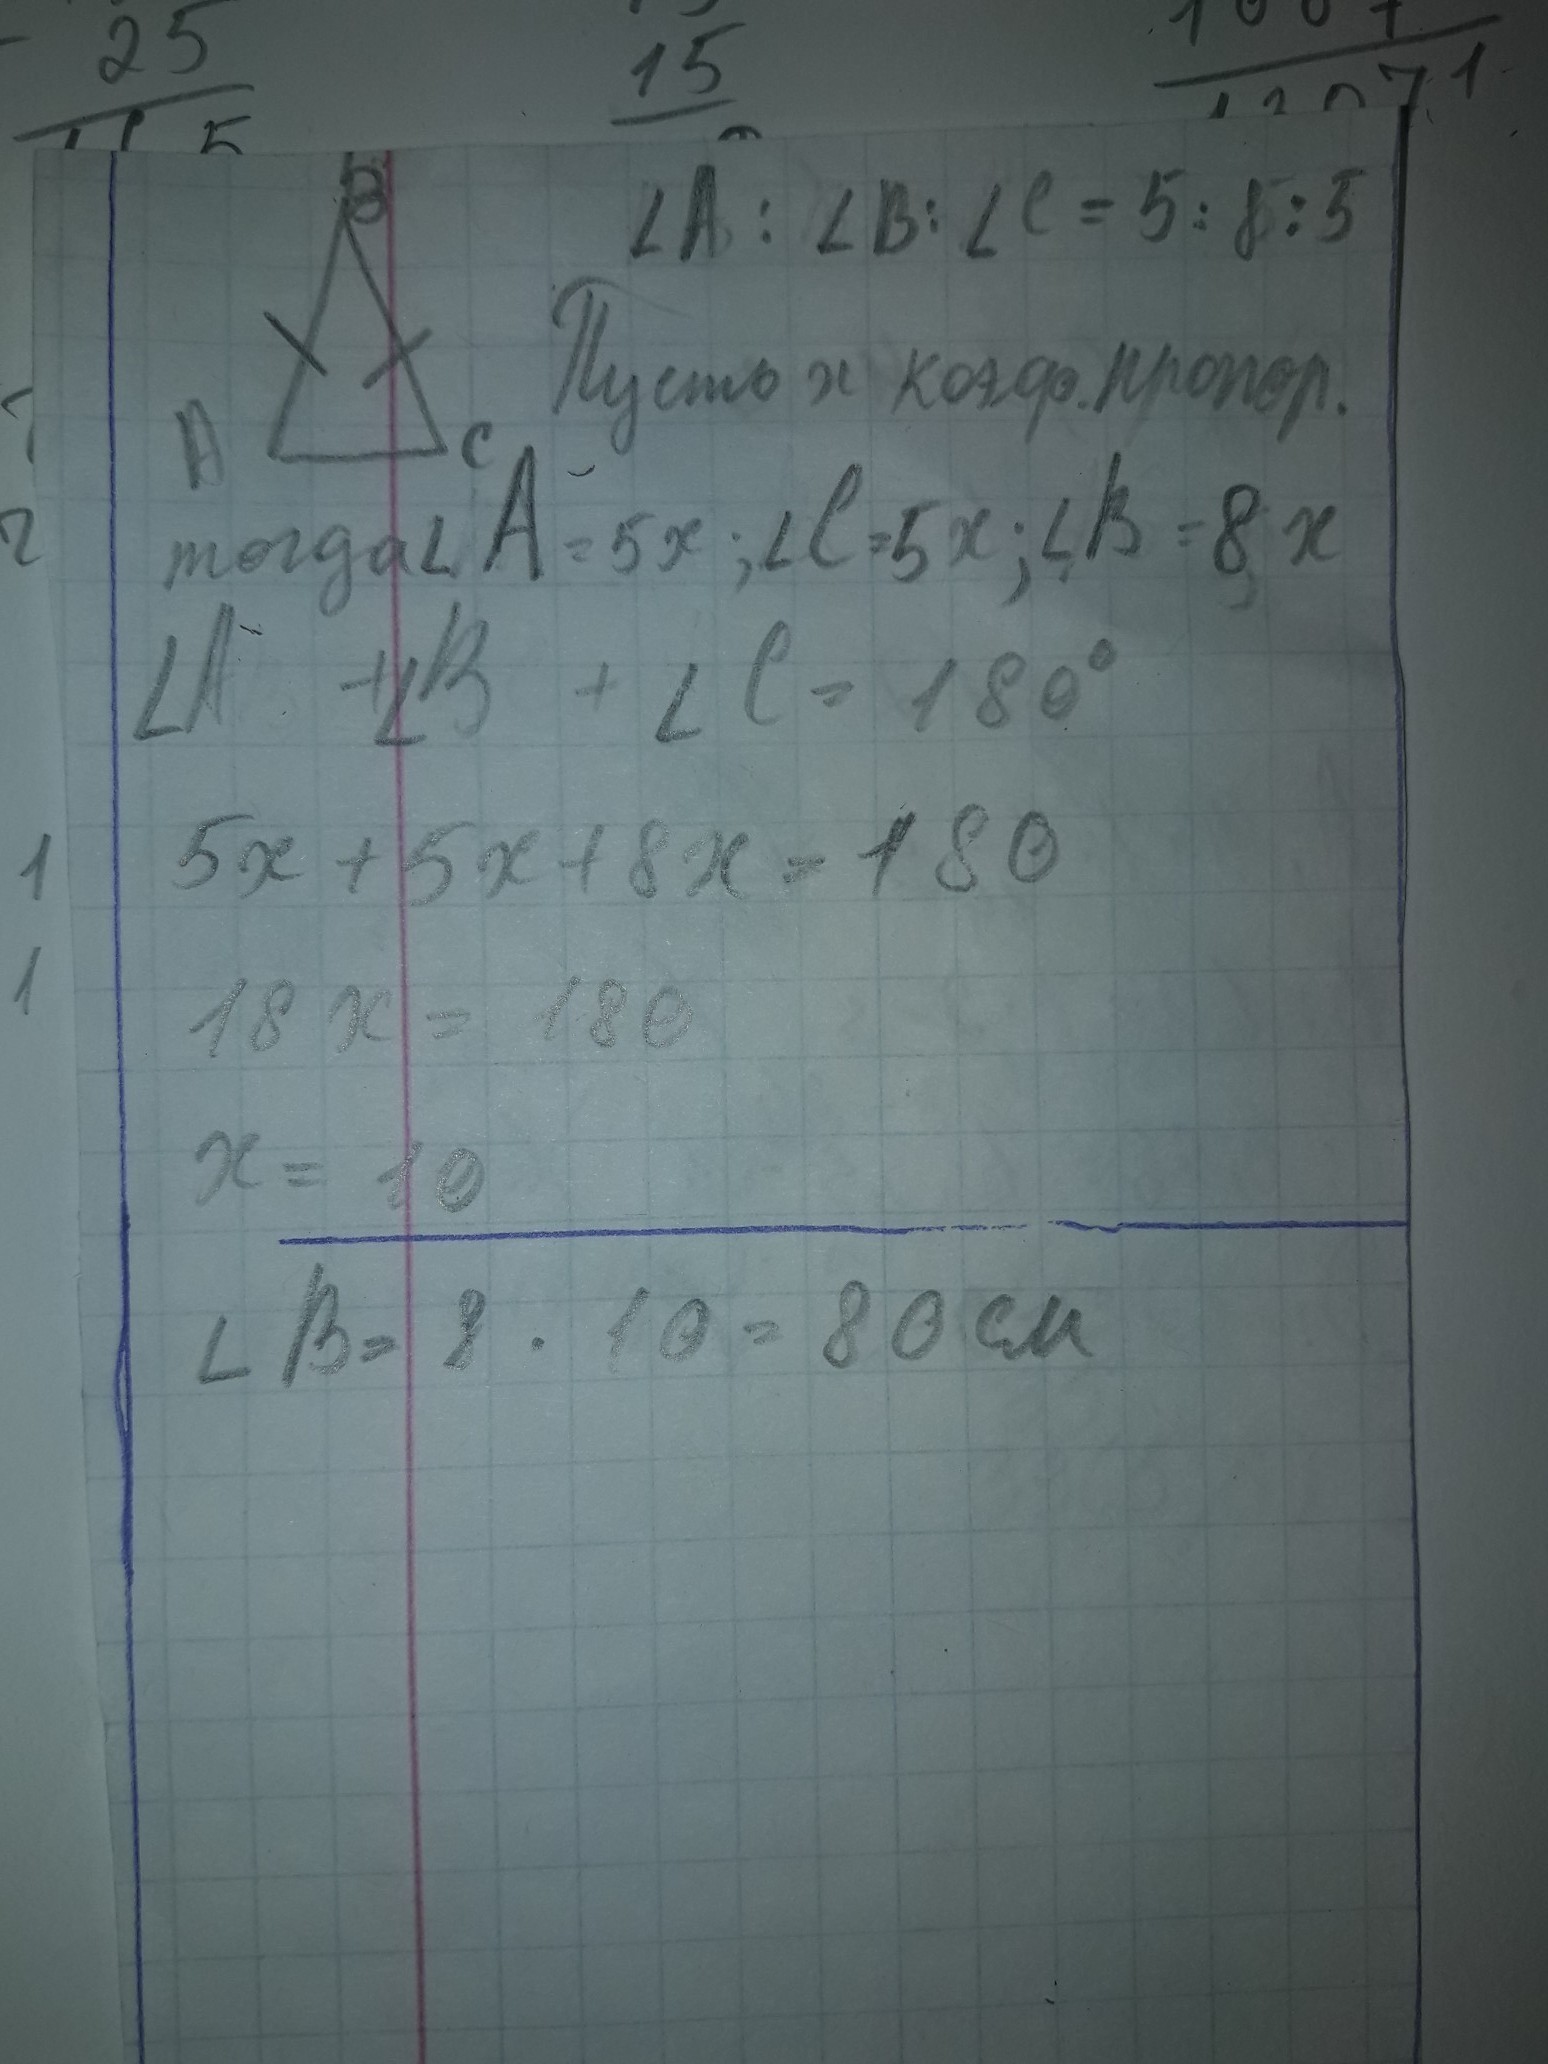 25
15
1007
1
B
∠A : ∠B : ∠C = 5 : 8 : 5
Пусть x коэф. пропор.
A
C
тогда ∠A = 5x ; ∠C = 5x ; ∠B = 8x
∠A + ∠B + ∠C = 180°
1
5x + 5x + 8x = 180
1
18x = 180
x = 10
∠B = 8 · 10 = 80 см